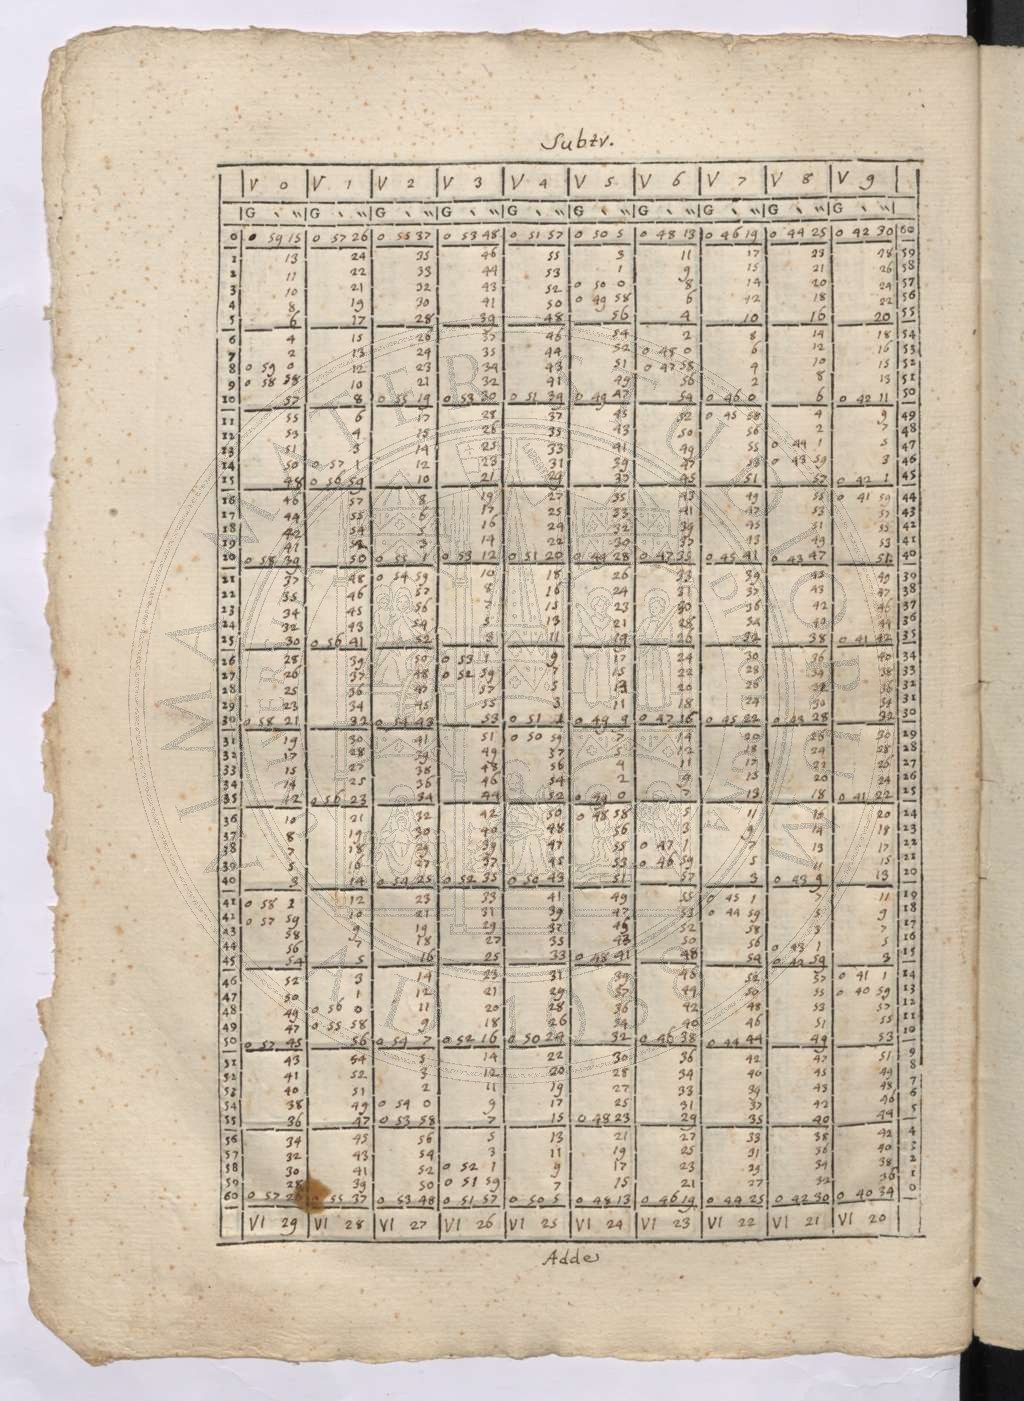 Subtr.
V 0 V 1 V 2 V 3 V 4 V 5 V 6 V 7 V 8 V 9
G ` `` G ` `` G ` `` G ` `` G ` `` G ` `` G ` `` G ` `` G ` `` G ` ``
0 0 59 15 0 57 26 0 55 37 0 53 48 0 51 57 0 50 5 0 48 13 0 46 19 0 44 25 0 42 30 60
1 13 24 35 46 55 3 11 17 23 28 59
2 11 22 33 44 53 1 9 15 21 26 58
3 10 21 32 43 52 0 50 0 8 14 20 24 57
4 8 19 30 41 50 0 49 58 6 12 18 22 56
5 6 17 28 39 48 56 4 10 16 20 55
6 4 15 26 37 46 54 2 8 14 18 54
7 2 13 24 35 44 52 0 48 0 6 12 16 53
8 0 59 0 12 23 34 43 51 0 47 58 4 10 15 52
9 0 58 58 10 21 32 41 49 56 2 8 13 51
10 57 8 0 55 19 0 53 30 0 51 39 0 49 47 54 0 46 0 6 0 42 11 50
11 55 6 17 28 37 45 52 0 45 58 4 9 49
12 53 4 15 26 35 43 50 56 2 7 48
13 51 3 14 25 33 41 49 55 0 44 1 5 47
14 50 0 57 1 12 23 31 39 47 53 0 43 59 3 46
15 48 0 56 59 10 21 29 37 45 51 57 0 42 1 45
16 46 57 8 19 27 35 43 49 55 0 41 59 44
17 44 55 6 17 25 33 41 47 53 57 43
18 42 54 5 16 24 32 39 45 51 55 42
19 41 52 3 14 22 30 37 43 49 53 41
20 0 58 39 50 0 55 1 0 53 12 0 51 20 0 49 28 0 47 35 0 45 41 0 43 47 51 40
21 37 48 0 54 59 10 18 26 33 39 45 49 39
22 35 46 57 8 16 24 31 37 43 47 38
23 34 45 56 7 15 23 30 36 42 46 37
24 32 43 54 5 13 21 28 34 40 44 36
25 30 0 56 41 52 3 11 19 26 32 38 0 41 42 35
26 28 39 50 0 53 1 9 17 24 30 36 40 34
27 26 37 48 0 52 59 7 15 22 28 34 38 33
28 25 36 47 57 5 13 20 26 32 36 32
29 23 34 45 55 3 11 18 24 30 34 31
30 0 58 21 32 0 54 43 53 0 51 1 0 49 9 0 47 16 0 45 22 0 43 28 32 30
31 19 30 41 51 0 50 59 7 14 20 26 30 29
32 17 28 39 49 57 5 12 18 24 28 28
33 15 27 38 48 56 4 11 17 22 26 27
34 14 25 36 46 54 2 9 15 20 24 26
35 12 0 56 23 34 44 52 0 49 0 7 13 18 0 41 22 25
36 10 21 32 42 50 0 48 58 5 11 16 20 24
37 8 19 30 40 48 56 3 9 14 18 23
38 7 18 29 39 47 55 0 47 1 7 13 17 22
39 5 16 27 37 45 53 0 46 59 5 11 15 21
40 3 14 0 54 25 0 52 35 0 50 43 51 57 3 0 43 9 13 20
41 0 58 1 12 23 33 41 49 55 0 45 1 7 11 19
42 0 57 59 10 21 31 39 47 53 0 44 59 5 9 18
43 58 9 19 29 37 45 52 58 3 7 17
44 56 7 18 27 35 43 50 56 0 43 1 5 16
45 54 5 16 25 33 0 48 41 48 54 0 42 59 3 15
46 52 3 14 23 31 39 46 52 57 0 41 1 14
47 50 1 12 21 29 37 44 50 55 0 40 59 13
48 49 0 56 0 11 20 28 36 42 48 53 57 12
49 47 0 55 58 9 18 26 34 40 46 51 55 11
50 0 57 45 56 0 54 7 0 52 16 0 50 24 32 0 46 38 0 44 44 49 53 10
51 43 54 5 14 22 30 36 42 47 51 9
52 41 52 3 12 20 28 34 40 45 49 8
53 40 51 2 11 19 27 33 39 43 48 7
54 38 49 0 54 0 9 17 25 31 37 42 46 6
55 36 47 0 53 58 7 15 0 48 23 29 35 40 44 5
56 34 45 56 5 13 21 27 33 38 42 4
57 32 43 54 3 11 19 25 31 36 40 3
58 30 41 52 0 52 1 9 17 23 29 34 38 2
59 28 39 50 0 51 59 7 15 21 27 32 36 1
60 0 57 26 0 55 37 0 53 48 0 51 57 0 50 5 0 48 13 0 46 19 0 44 25 0 42 30 0 40 34 0
VI 29 VI 28 VI 27 VI 26 VI 25 VI 24 VI 23 VI 22 VI 21 VI 20
Adde